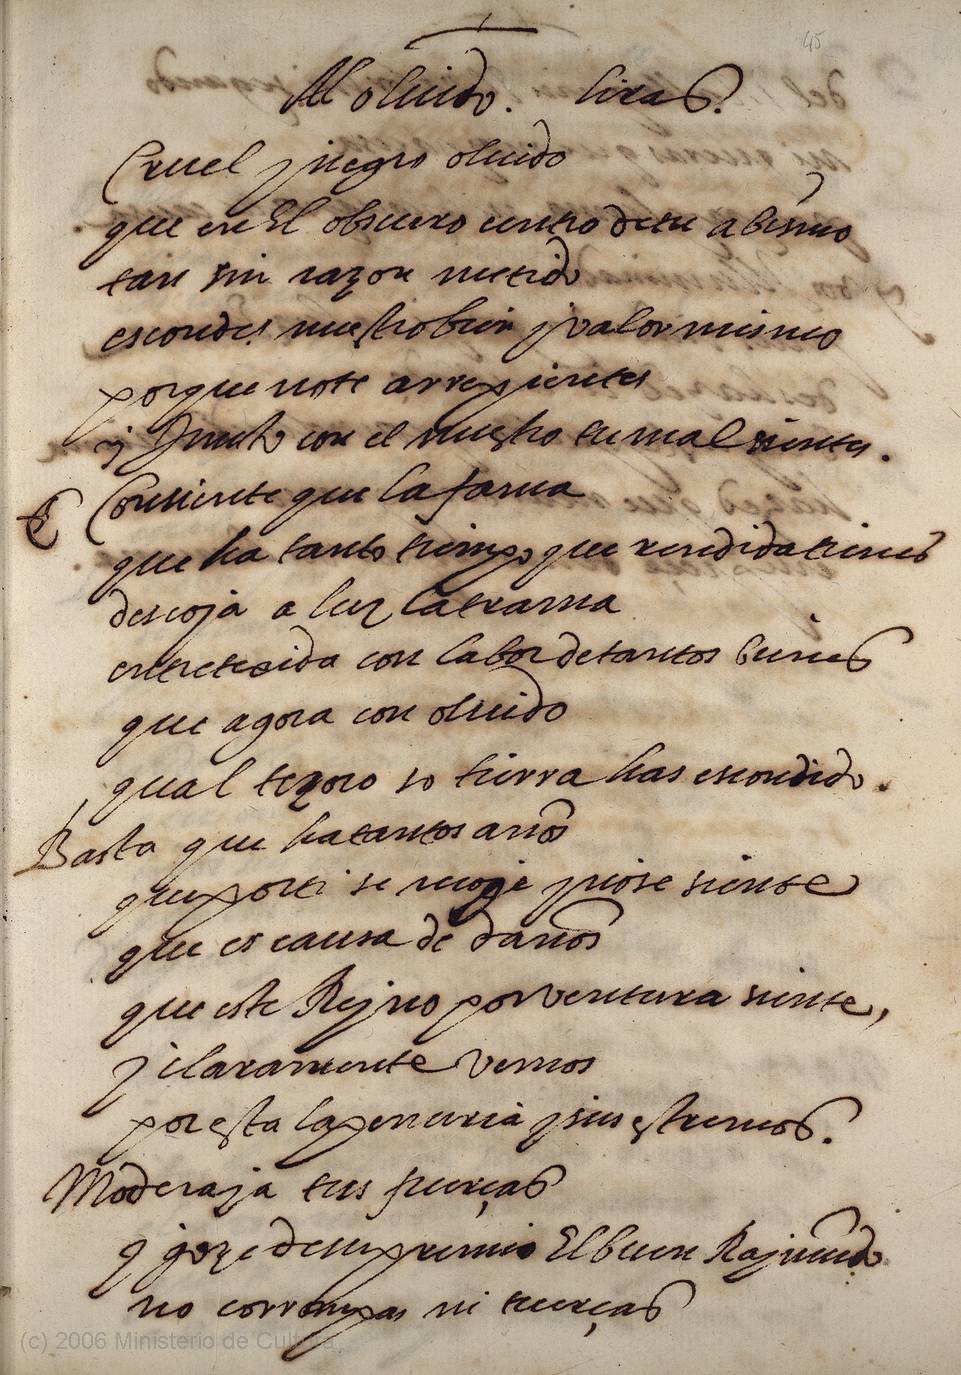 45
Al oluido. liras.
Cruel y negro oluido
que en El obscuro centro de tu abismo
tan sin razon metido
escondes nuestro bien y valor mismo
porque no te arrepientes
y Junto con el nuestro tu mal sientes.
Consiente que la fama
que ha tanto tiempo que rendida tienes
descoja a luz la trama
entretexida con labor de tantos bienes
que agora con oluido
qual tezoro so tierra has escondido.
Basta que ha tantos años
que por ti se recoge y no se siente
que es causa de daños
que este Reyno por ventura siente,
y claramente vemos
por esta la penuria y sus estremos.
Modera ya tus fuerças
q goze de su premio El buen Raymundo
no corrompas ni tuerças
(c) 2006 Ministerio de Cultura